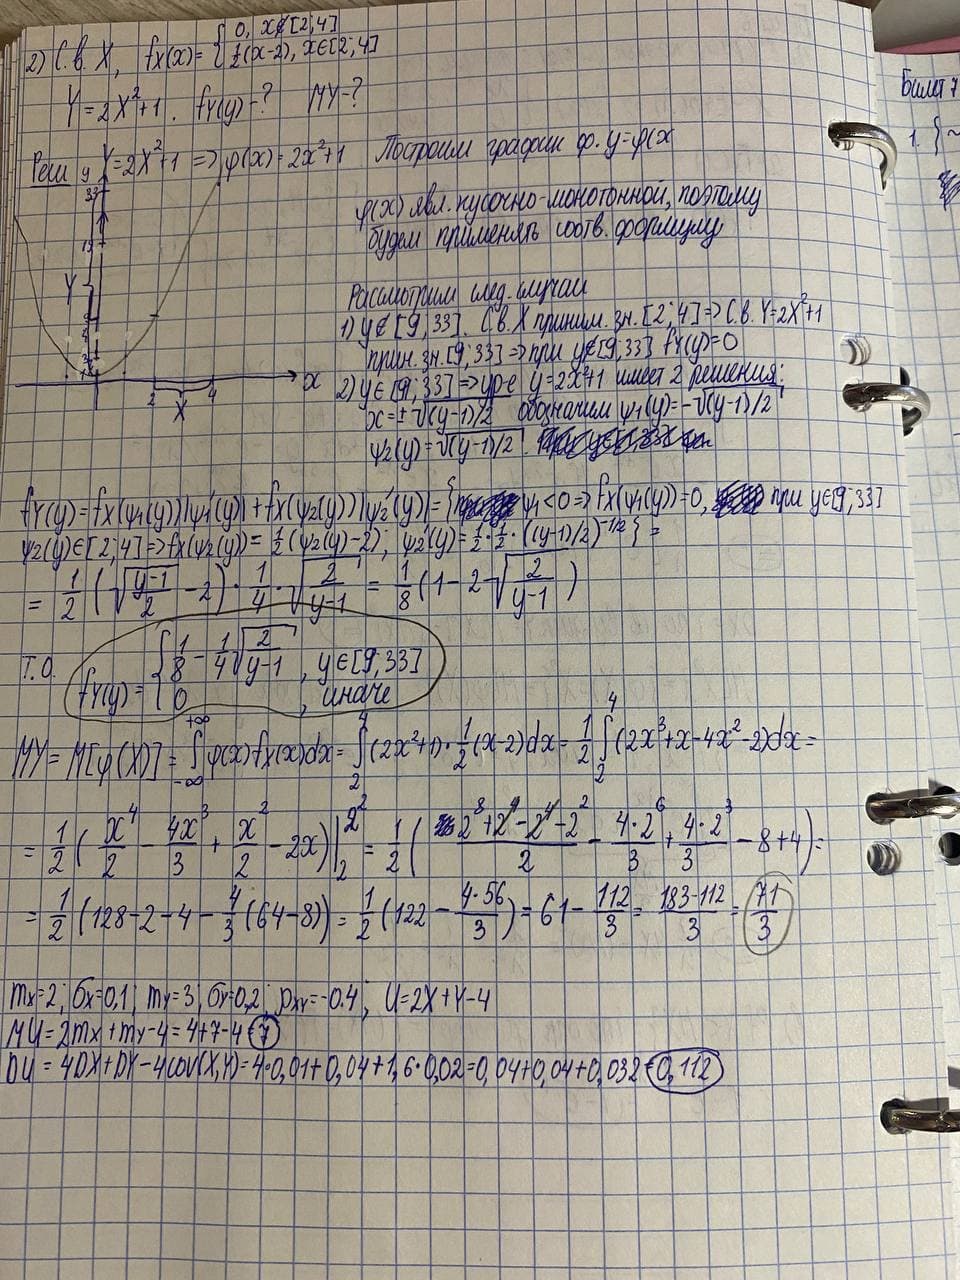 2) С.в. X, fX(x) = { 0, x∉[2;4]
½(x-2), x∈[2;4]
Y = 2X²+1. fY(y)-? MY-?
Реш Y=2X²+1 => φ(x)=2x²+1 Построим график ф. y=φ(x
φ(x) явл. кусочно-монотонной, поэтому
будем применять соотв. формулу
Рассмотрим след. случаи
1) y∉[9;33]. С.в. X приним. зн. [2;4] => С.в. Y=2X²+1
прин. зн. [9;33] => при y∉[9;33] fY(y)=0
2) y∈[9;33] => ур-е y=2x²+1 имеет 2 решения:
x=±√(y-1)/2 обозначим ψ₁(y)=-√(y-1)/2
ψ₂(y)=√(y-1)/2.
y
33
19
Y
x
2
4
X
fY(y)=fX(ψ₁(y))|ψ₁'(y)|+fX(ψ₂(y))|ψ₂'(y)|={ ψ₁<0 => fX(ψ₁(y))=0, при y∈[9;33]
ψ₂(y)∈[2;4] => fX(ψ₂(y))=½(ψ₂(y)-2); ψ₂'(y)=½·½·((y-1)/2)^-1/2 } =
= 1/2 (√(y-1)/2 - 2) · 1/4 · √2/(y-1) = 1/8 (1-2√2/(y-1))
Т.О. fY(y) = { 1/8 - 1/4 √2/(y-1), y∈[9;33]
0, иначе
MY = M[φ(X)] = ∫₋∞^+∞ φ(x)fX(x)dx = ∫₂⁴ (2x²+1)·½(x-2)dx = ½ ∫₂⁴ (2x³+x-4x²-2)dx =
= 1/2 (x⁴/2 - 4x³/3 + x²/2 - 2x)|₂^2² = 1/2 ((2⁸+2⁴-2⁴-2²)/2 - 4·2⁶/3 + 4·2³/3 - 8+4) =
= 1/2 (128-2-4-4/3(64-8)) = 1/2 (122 - 4·56/3) = 61 - 112/3 = (183-112)/3 = 71/3
mx=2; σx=0,1; my=3; σy=0,2; ρxy=-0.4; U=2X+Y-4
MU=2mx+my-4=4+7-4=7
DU=4DX+DY-4cov(X,Y)=4·0,01+0,04+1,6·0,02=0,04+0,04+0,032=0,112
Билет 7
1. {